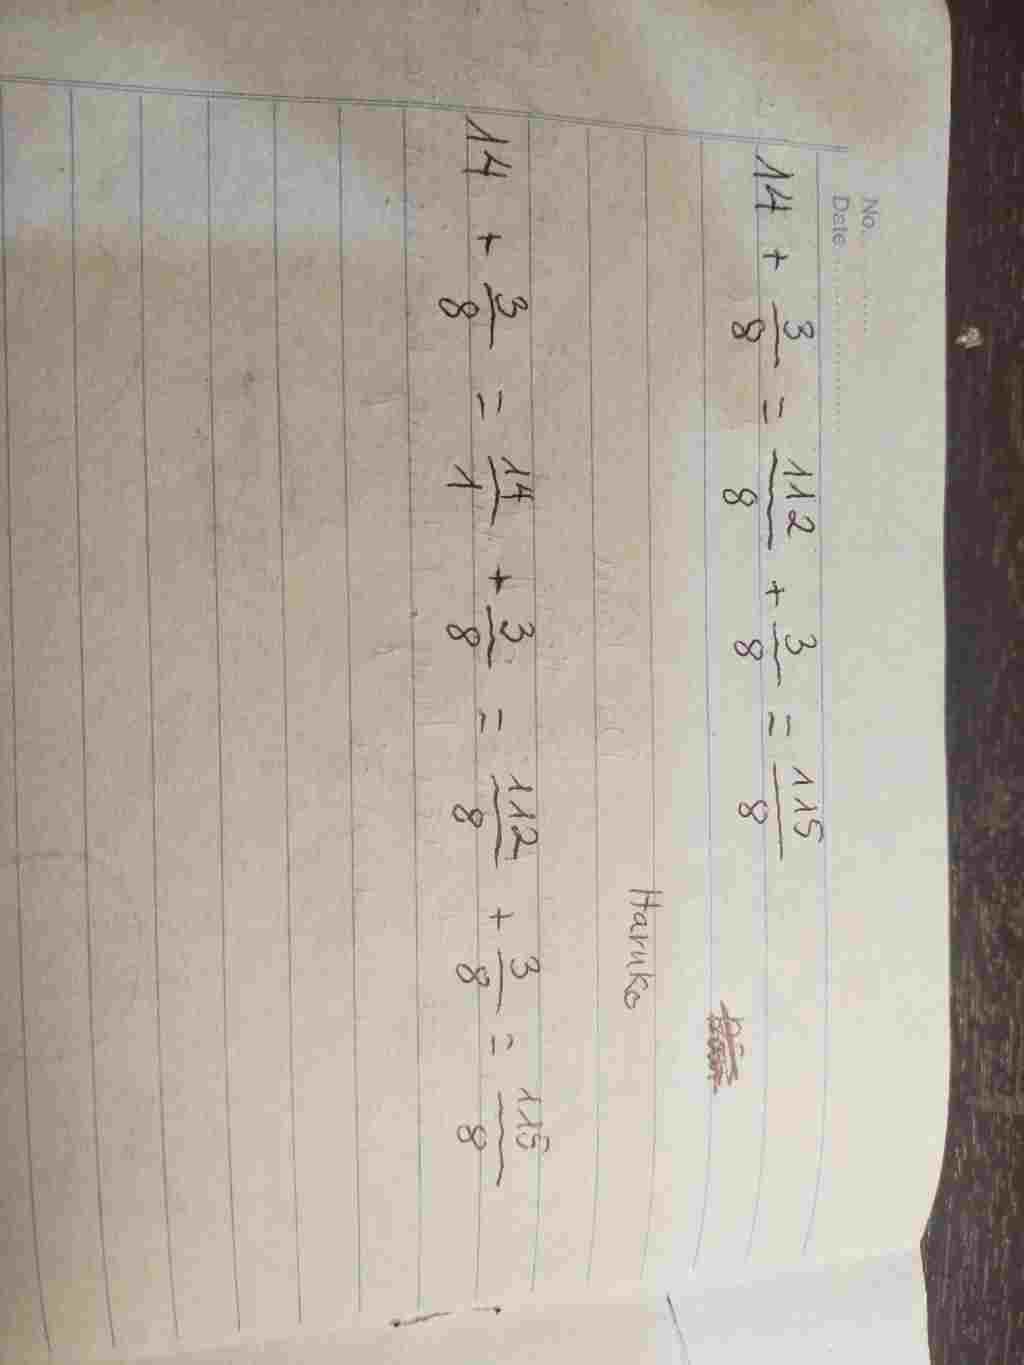 No. ......
Date ..................
14 + 3/8 = 112/8 + 3/8 = 115/8
Haruko
14 + 3/8 = 14/1 + 3/8 = 112/8 + 3/8 = 115/8